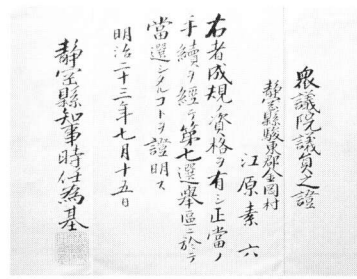 衆議院議員之證
静岡縣駿東郡金岡村
江原素六
右者成規ノ資格ヲ有シ正當ノ
手續ヲ經テ第七選擧區ニ於テ
當選シタルコトヲ證明ス
明治二十三年七月十五日
静岡縣知事時任為基